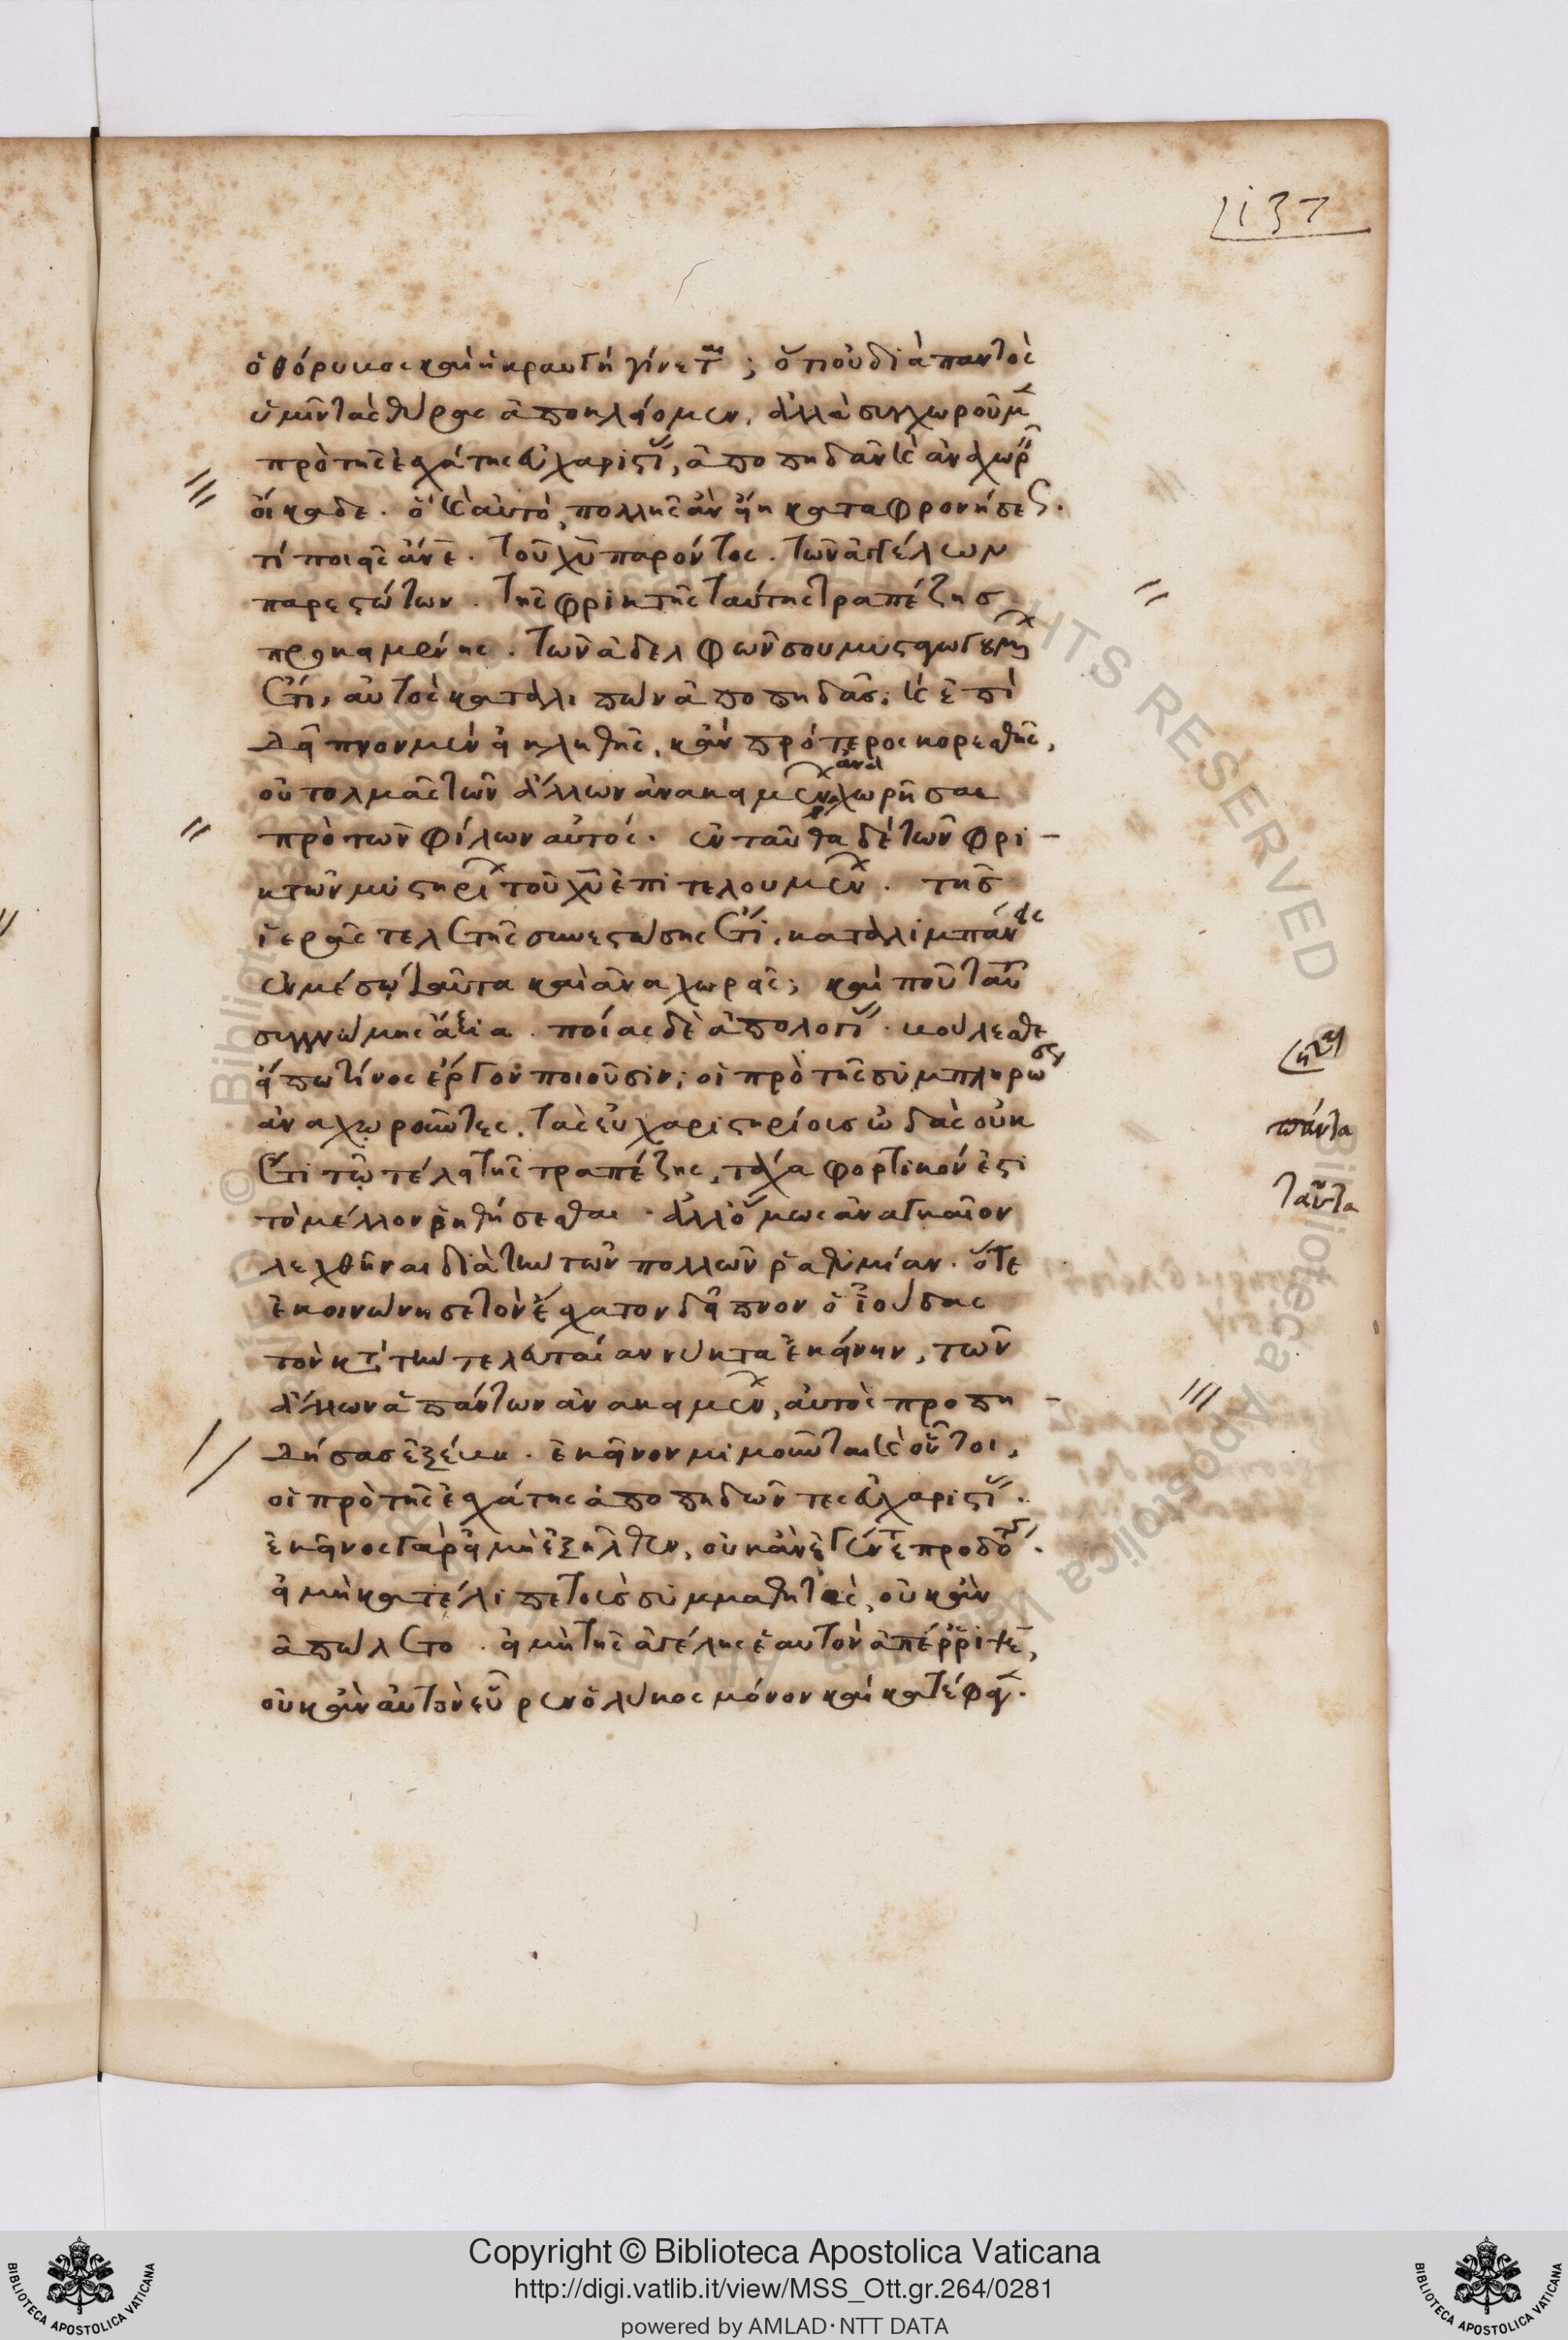 137
ὁ θόρυβος καὶ ἡ κραυγὴ γίνεται; ὅτι οὐ διὰ παντὸς
ὑμῖν τὰς θύρας ἀποκλείομεν. ἀλλὰ συγχωροῦμεν
πρὸ τῆς ἐσχάτης εὐχαριστίας, ἀποπηδᾶν καὶ ἀναχωρεῖν
οἴκαδε. ὃ καὶ αὐτὸ, πολλῆς ἂν εἴη καταφρονήσεως.
τί ποιεῖς ἄνθρωπε. τοῦ χῦ παρόντος. τῶν ἀγγέλων
παρεστώτων. τῆς φρικτῆς ταύτης τραπέζης
προκειμένης. τῶν ἀδελφῶν σου μυσταγωγουμένων
ἔτι, αὐτὸς καταλιπὼν ἀποπηδᾶς; καὶ ἐπὶ
δεῖπνον μὲν εἰ κληθῆς, κἂν πρότερος κορεσθῆς,
οὐ τολμᾶς τῶν ἄλλων ἀνακειμένων ἀναχωρῆσαι
πρὸ τῶν φίλων αὐτός. ἐνταῦθα δὲ τῶν φρι-
κτῶν μυστηρίων τοῦ χῦ ἐπιτελουμένων. τῆς
ἱερᾶς τελετῆς συνεστώσης ἔτι, καταλιμπάνεις
ἐν μέσῳ ταῦτα καὶ ἀναχωρεῖς; καὶ ποῦ ταῦτα
συγγνώμης ἄξια. ποίας δὲ ἀπολογίας. βούλεσθε
εἴπω τίνος ἔργον ποιοῦσιν; οἱ πρὸ τῆς συμπληρώσεως
ἀναχωροῦντες, τὰς εὐχαριστηρίοις ὠδὰς οὐκ
ἔτι τῷ τέλει τῆς τραπέζης, τάχα φορτικόν ἐστι
τὸ μέλλον ῥηθήσεσθαι. ἀλλ' ὅμως ἀναγκαῖον
λεχθῆναι διὰ τὴν τῶν πολλῶν ῥαθυμίαν. ὅτε
ἐκοινώνησε τὸν ἔσχατον δεῖπνον ὁ ἰούδας
τὸν κατὰ τὴν τελευταίαν νύκτα ἐκείνην, τῶν
ἄλλων ἁπάντων ἀνακειμένων, αὐτὸς προπη-
δήσας ἐξέβη. ἐκεῖνον μιμοῦνται καὶ οὗτοι,
οἱ πρὸ τῆς ἐσχάτης ἀποπηδῶντες εὐχαριστίας.
ἐκεῖνος γὰρ εἰ μὴ ἐξῆλθεν, οὐκ ἂν ἐγένετο προδότης.
εἰ μὴ κατέλιπε τοὺς συμμαθητὰς, οὐκ ἂν
ἀπώλετο. εἰ μὴ τῆς ἀγέλης ἑαυτὸν ἀπέρριψεν,
οὐκ ἂν αὐτὸν εὗρεν ὁ λύκος μόνον καὶ κατέφαγεν.
πάντα
ταῦτα
Copyright © Biblioteca Apostolica Vaticana
http://digi.vatlib.it/view/MSS_Ott.gr.264/0281
powered by AMLAD·NTT DATA